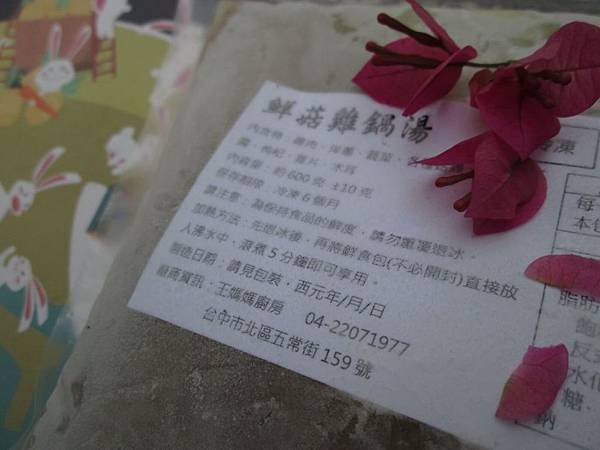 鮮菇雞鍋湯
內容物：雞肉、洋蔥、蔬菜、各種
菌、枸杞、薑片、木耳
內容量：約600克±10克
保存期限：冷凍6個月
請注意：為保持食品的鮮度，請勿重覆退冰。
加熱方法：先退冰後，再將鮮食包(不必開封)直接放
入沸水中，滾煮5分鐘即可享用。
製造日期：請見包裝，西元年/月/日
廠商資訊：王媽媽廚房 04-22071977
台中市北區五常街159號
冷凍
每
本包
脂肪
飽
反式
水化
糖
鈉